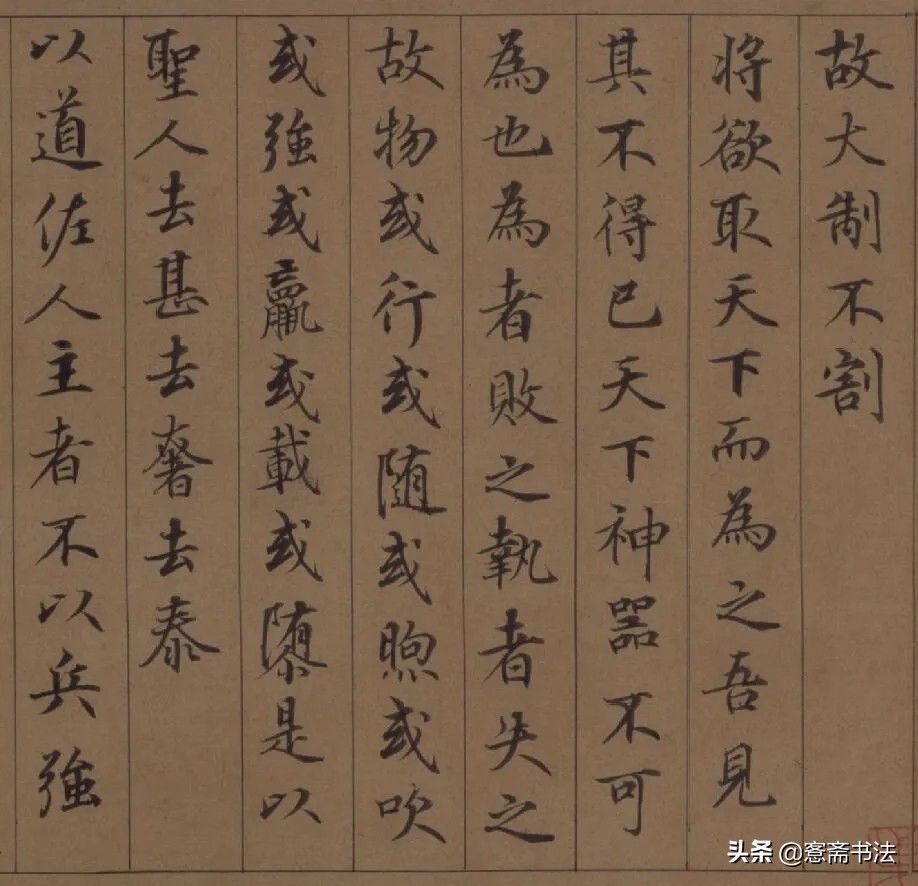 故大制不割
将欲取天下而為之吾見
其不得已天下神器不可
為也為者敗之執者失之
故物或行或随或煦或吹
或強或羸或載或隳是以
聖人去甚去奢去泰
以道佐人主者不以兵強
头条@窓斋书法